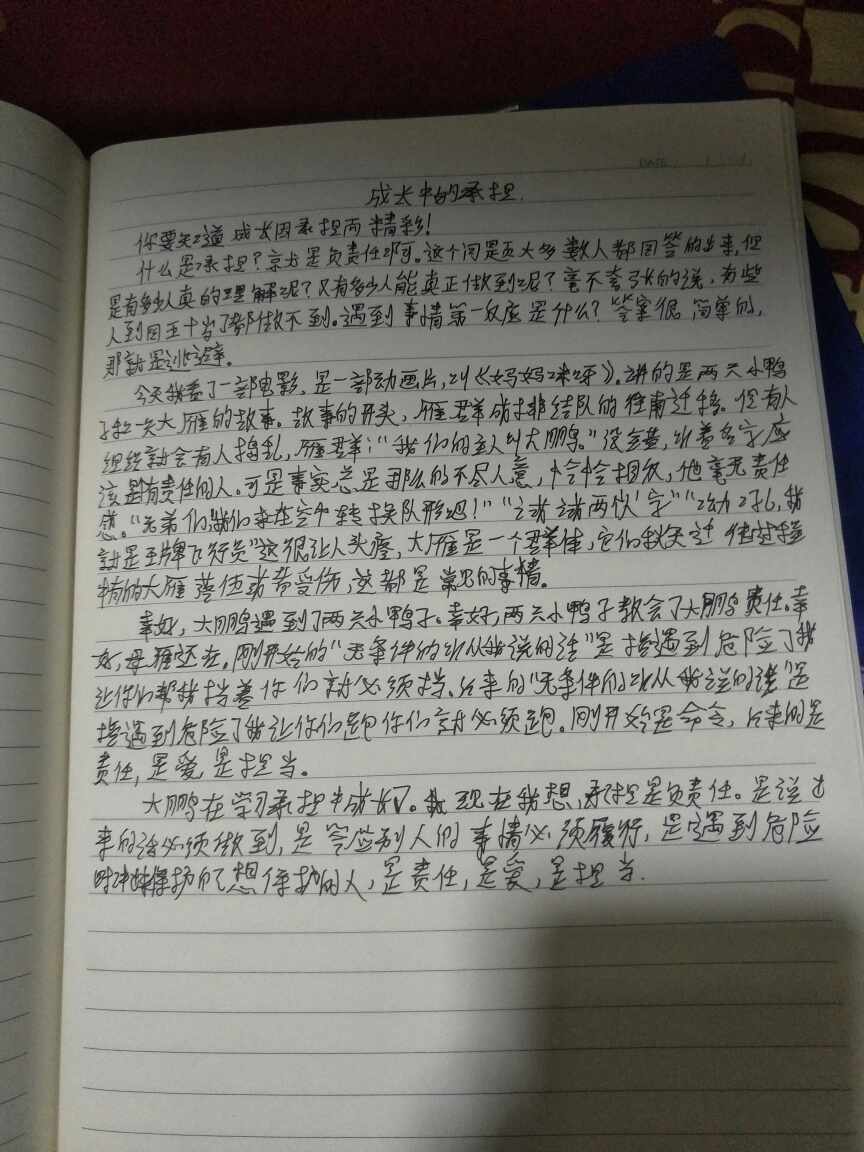 DATE
成长中的承担
你要知道成长因承担而精彩!
什么是承担?就是负责任即可。这个问题大多数人都回答的出来,但
是有多少人真的理解呢?又有多少人能真正做到呢?毫不夸张的说,有些
人到四五十岁了都做不到。遇到事情第一反应是什么?答案很简单的,
那就是逃避。
今天我看了一部电影,是一部动画片,叫《妈妈咪呀》。讲的是两只小鸭
子和一只大雁的故事。故事的开头,雁群成排结队的往南迁移。但有人
组织就会有人捣乱,雁群:“我们的主人叫大鹏。”没错,听着名字应
该是有责任的人。可是事实总是那么的不尽人意,恰恰相反,他毫无责任
感。“兄弟们我们来在空中转换队形吧!”
就是王牌飞行员”这很让人头疼,大雁是一个群体,它们秋天迁徙过程
中有的大雁落伍或者受伤,这都是常见的事情。
幸好,大鹏遇到了两只小鸭子。幸好,两只小鸭子教会了大鹏责任。幸
好,母雁还在,刚开始的“无条件的听从我说的话”是指遇到危险了我
让你们帮我挡着你们就必须挡。后来的“无条件的听从我说的话”是
指遇到危险了我让你们跑你们就必须跑。刚开始是命令,后来的是
责任,是爱,是担当。
大鹏在学习承担中成长了。现在我想,承担是负责任。是说出
来的话必须做到,是答应别人的事情必须履行,是遇到危险
时冲 保护自己想保护的人,是责任,是爱,是担当.